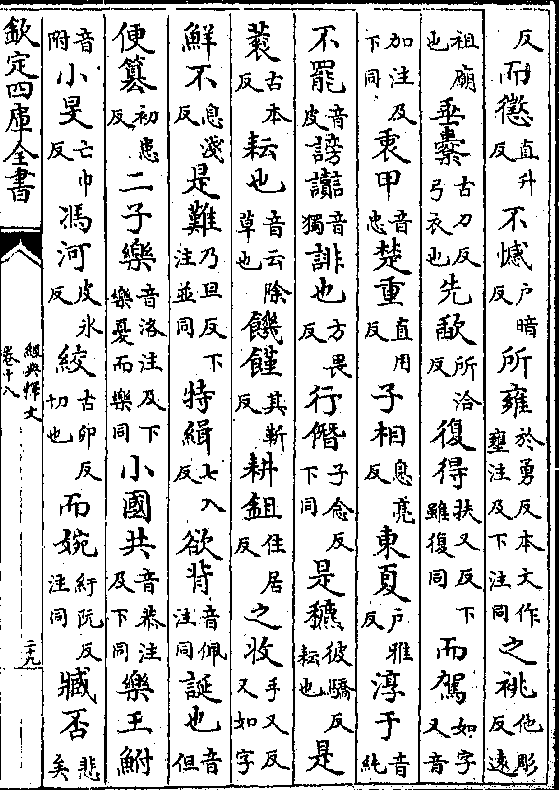 反而懲直升反不憾戶暗反所雍於勇反本文作壅注及下注同之祧他彫反遠
祖廟也垂櫜古刀反弓衣也先歃所洽反復得扶又反下雖復同而駕如字又音
加注及下同衷甲音忠楚重直用反子相息亮反東夏戶雅反淳于音純
不罷音皮謗讟音獨誹也方畏反行僭子念反下同是穮彼驕反耘也是
蓘古本反耘也音云除草也饑饉其靳反耕鉏仕居反之收手又反又如字
鮮不息淺反是難乃旦反下注並同特緝七入反欲背音佩注同誕也音但
便篡初患反二子樂音洛注及下樂憂而樂同小國共音恭注及下同樂王鮒
音附小旻亡巾反馮河皮氷反絞古卯反切也而婉紆阮反注同臧否悲矣
欽定四庫全書
經典釋文
卷十八
二十九